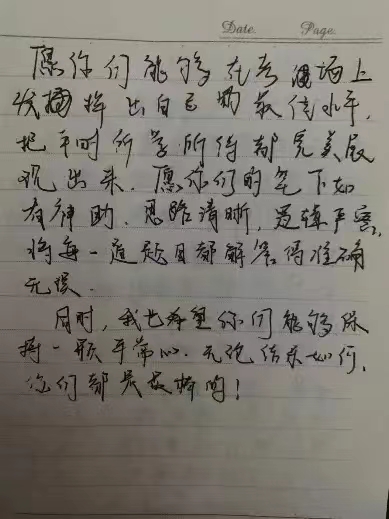 Date.  Page.
愿你们能够在考场上
发挥出自己的最佳水平,
把平时所学所得都完美展
现出来. 愿你们的笔下如
有神助、思路清晰, 逻辑严密,
将每一道题目都解答得准确
无误.
同时, 我也希望你们能够保
持一颗平常心. 无论结果如何,
你们都是最棒的!